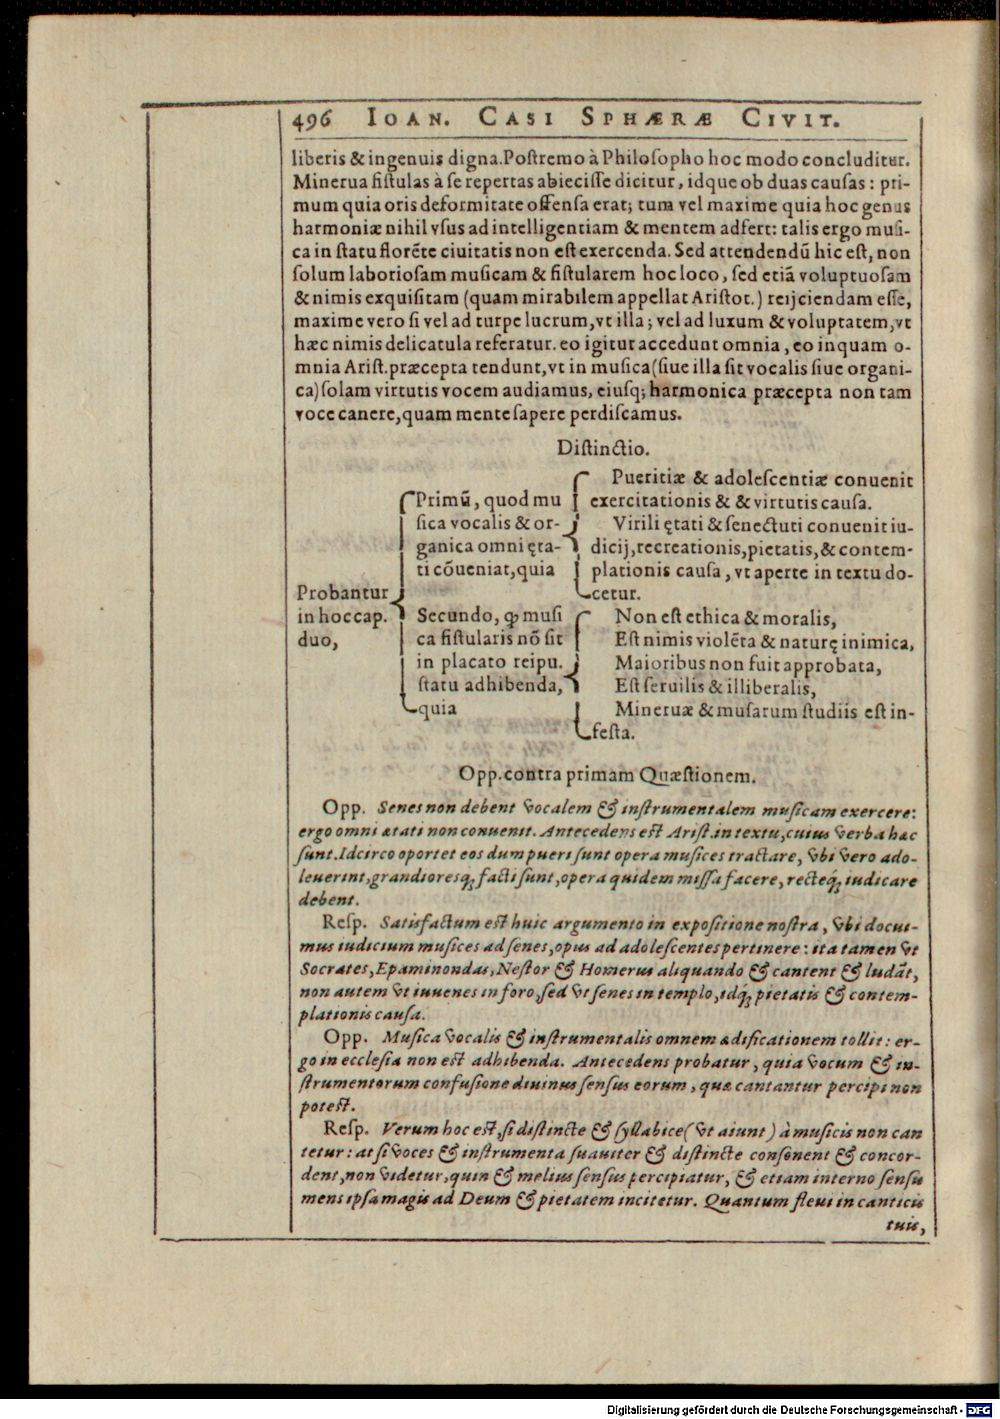 496 IOAN. CASI SPHÆRÆ CIVIT.
liberis & ingenuis digna. Postremo à Philosopho hoc modo concluditur.
Minerua fistulas à se repertas abiecisse dicitur, idque ob duas causas: pri-
mum quia oris deformitate offensa erat; tum vel maxime quia hoc genus
harmoniæ nihil vsus ad intelligentiam & mentem adfert: talis ergo musi-
ca in statu florẽte ciuitatis non est exercenda. Sed attendendũ hic est, non
solum laboriosam musicam & fistularem hoc loco, sed etiã voluptuosam
& nimis exquisitam (quam mirabilem appellat Aristot.) reijciendam esse,
maxime vero si vel ad turpe lucrum, vt illa; vel ad luxum & voluptatem, vt
hæc nimis delicatula referatur. eo igitur accedunt omnia, eo inquam o-
mnia Arist. præcepta tendunt, vt in musica (siue illa sit vocalis siue organi-
ca) solam virtutis vocem audiamus, eiusq; harmonica præcepta non tam
voce canere, quam mente sapere perdiscamus.
Distinctio.
Probantur
in hoc cap.
duo,
Primũ, quod mu
sica vocalis & or-
ganica omni ęta-
ti cõueniat, quia
Pueritiæ & adolescentiæ conuenit
exercitationis & & virtutis causa.
Virili ętati & senectuti conuenit iu-
dicij, recreationis, pietatis, & contem-
plationis causa, vt aperte in textu do-
cetur.
Secundo, ꝙ musi
ca fistularis nõ sit
in placato reipu.
statu adhibenda,
quia
Non est ethica & moralis,
Est nimis violẽta & naturę inimica,
Maioribus non fuit approbata,
Est seruilis & illiberalis,
Mineruæ & musarum studiis est in-
festa.
Opp. contra primam Quæstionem.
Opp. Senes non debent vocalem & instrumentalem musicam exercere:
ergo omni ætati non conuenit. Antecedens est Arist. in textu, cuius verba hæc
sunt. Idcirco oportet eos dum pueri sunt opera musices tractare, vbi vero ado-
leuerint, grandioresq; facti sunt, opera quidem missa facere, recteq́; iudicare
debent.
Resp. Satisfactum est huic argumento in expositione nostra, vbi docui-
mus iudicium musices ad senes, opus ad adolescentes pertinere: ita tamen vt
Socrates, Epaminondas, Nestor & Homerus aliquando & cantent & ludãt,
non autem vt iuuenes in foro, sed vt senes in templo, idq́; pietatis & contem-
plationis causa.
Opp. Musica vocalis & instrumentalis omnem ædificationem tollit: er-
go in ecclesia non est adhibenda. Antecedens probatur, quia vocum & in-
strumentorum confusione diuinus sensus eorum, quæ cantantur percipi non
potest.
Resp. Verum hoc est, si distincte & syllabice (vt aiunt) à musicis non can
tetur: at si voces & instrumenta suauiter & distincte consonent & concor-
dent, non videtur, quin & melius sensus percipiatur, & etiam interno sensu
mens ipsa magis ad Deum & pietatem incitetur. Quantum fleui in canticis
tuis,
Digitalisierung gefördert durch die Deutsche Forschungsgemeinschaft - DFG